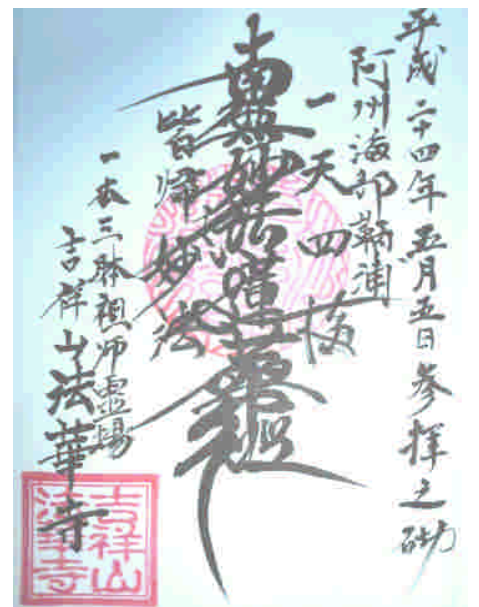 平成二十四年五月五日参拝之砌
阿州海部鞆浦
一天四海
南無妙法蓮華経
皆帰妙法
一木三躰祖師霊場
吉祥山法華寺
吉祥山
法華寺